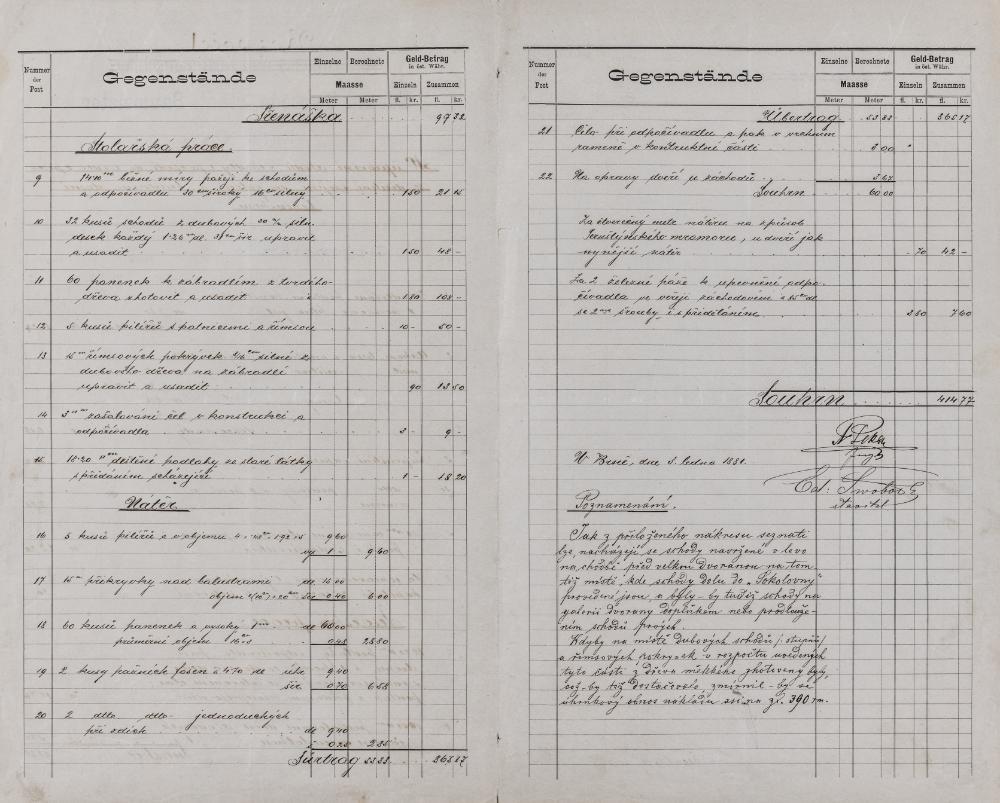 Nummer der Post
Gegenstände
Einzelne Berechnete
Maasse
Meter Meter
Geld-Betrag
in öst. Währ.
Einzeln Zusammen
fl. kr. fl. kr.
99 32
Stolařská práce.
9 běžné míry pažejí ke schodům
a odpočívadlu 30 cm široký 16 cm silný 1 50 21 15
10 32 kusů schodů z dubových
desek každý upravit
a usadit 1 50 48 -
11 60 panenek k zábradlím z tvrdého
dřeva zhotovit a usadit 1 80 108 -
12 5 kusů pilířů s palnicemi a římsou 10 - 50 -
13 15 m římsových pokrývek silné z
dubového dřeva na zábradlí
upravit a usadit 90 13 50
14 3 m zašalování čel v konstrukci a
odpočívadla 3 - 9 -
15 18·20 m deštěné podlahy ze staré látky
s přidáním scházející 1 - 18 20
Nátěr.
16 5 kusů pilířů a v objemu 9 60
vý 1 - 9 60
17 15 m překryvky nad balustrami de. 15 00
objem 0·40 6 00
18 60 kusů panenek a vysoký 1 de 60 00
průměrní objem 0·48 28 80
19 2 kusy pažních fošen à 4·70 de 9 40
šir. 0·70 6 58
20 2 dtto dtto jednoduchých
při zdích de 9·40
0·25 2 35
Fürtrag 53 33 365 17
Nummer der Post
Gegenstände
Einzelne Berechnete
Maasse
Meter Meter
Geld-Betrag
in öst. Währ.
Einzeln Zusammen
fl. kr. fl. kr.
Übertrag 53 33 365 17
21 Čelo při odpočívadlu a pak v vrchním
rameně v kontruktné části 3 00
22 Na opravy dveří u záchodů 3 67
Souhrn 60 00
Za čtverečný metr nátěru na způsob
mramoru, u dveří jak
nynější nátěr 70 42 -
Za 2 železné páže k upevnění odpo-
čívadla ve věřeji záchodovém
se 2 šrouby i s přiděláním 3 80 7 60
Souhrn 414 77
V Brně, dne 5. ledna 1881.
stavitel
Poznamenání.
Jak z přiloženého nákresu seznati
lze, nacházejí se schody navržené v levo
na chodbě před velkou dvoranou na tom-
též místě, kde schody dolu do „Sokolovny"
provedené jsou, a byly-by tudíž schody na
galerii dvorany doplňkem nebo prodlouže-
ním schodů prvých.
Kdyby na místě dubových schodů /:stupňů:/
a římsových pokrývek v rozpočtu uvedených
tyto části z dřeva měkkého zhotoveny byly,
což-by též dostačovalo, zmírnil-by se
úhrnkový obnos nákladu asi na zl. 390 r.m.